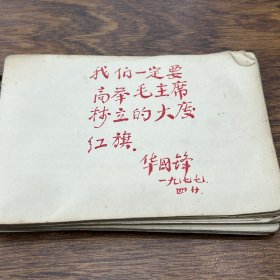 我们一定要
高举毛主席
树立的大庆
红旗.
华国锋
一九七七.
四廿.